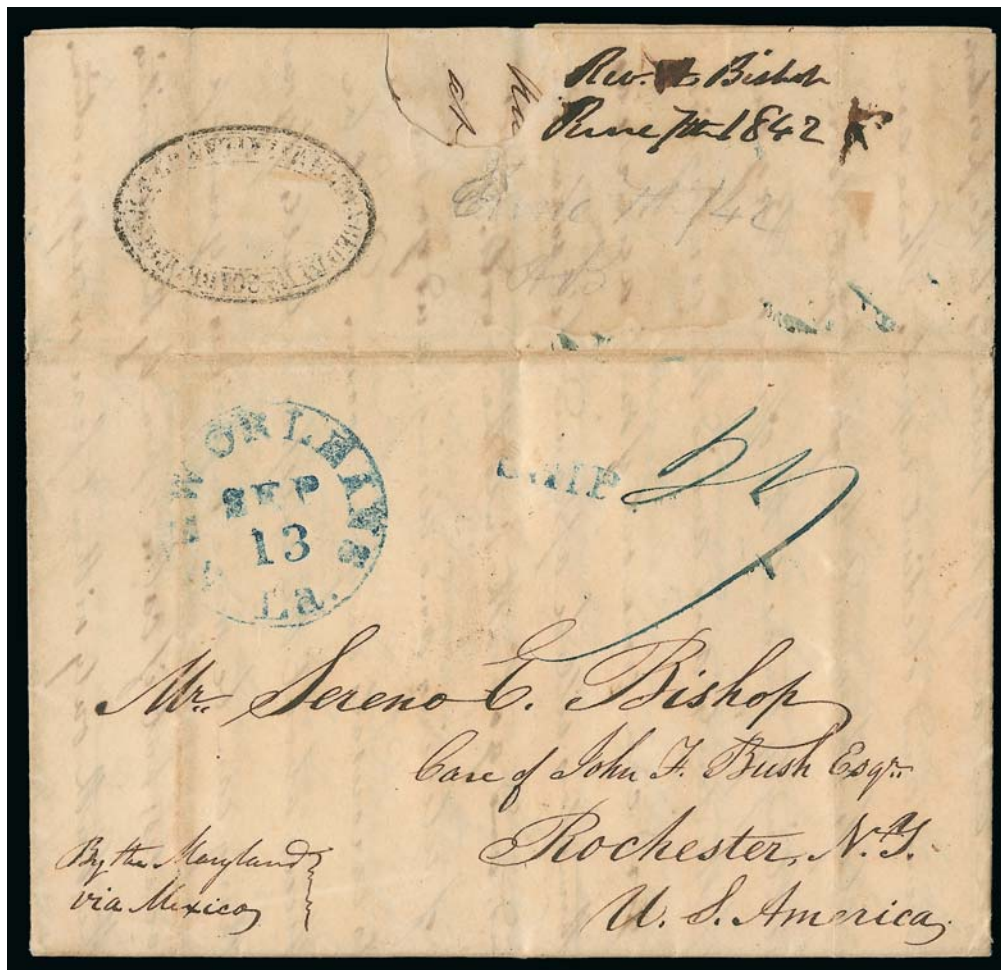 Rev. A Bishop
June 7th 1842
June 7th /42
NEW ORLEANS
SEP
13
La.
SHIP
Mr. Sereno E. Bishop
Care of John F. Bush Esqr.
Rochester, N.Y.
U. S. America
By the Maryland
via Mexico